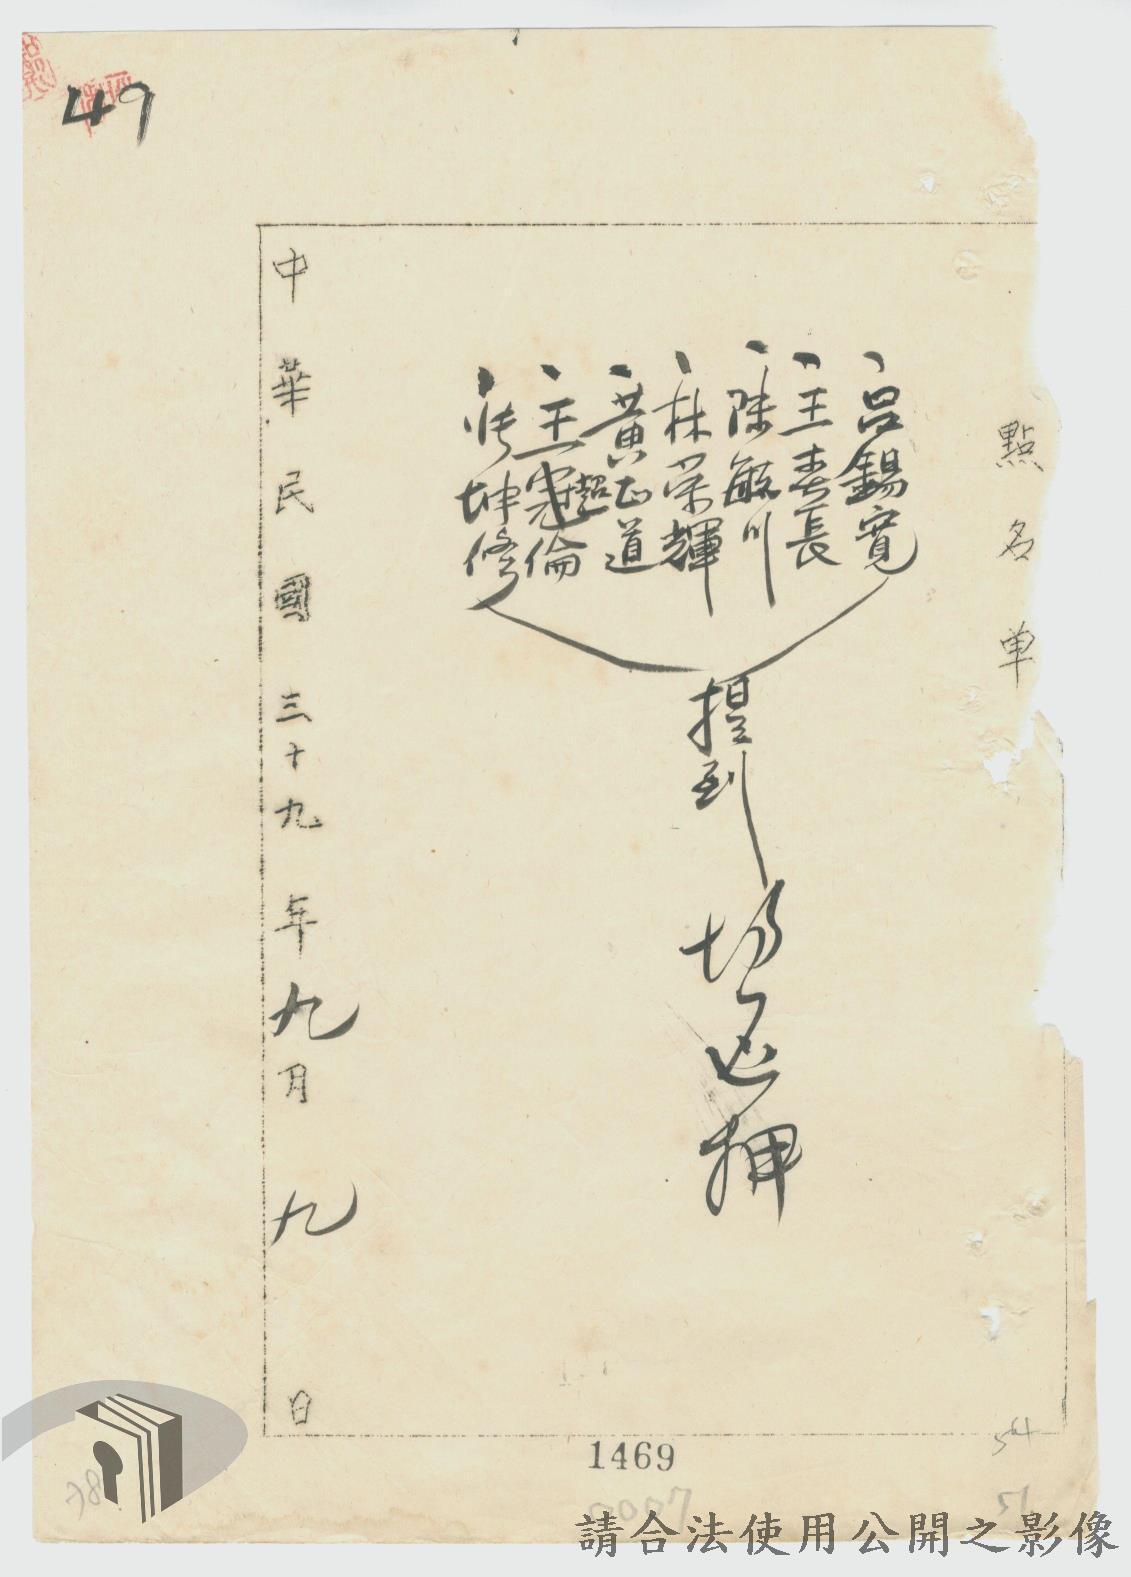 點名單
呂錫寬
王春長
陳敏川
林榮輝
黃正道
超
王冠倫
張坤修
提到
均還押
中華民國三十九年九月九日
49
1469
54
51
請合法使用公開之影像